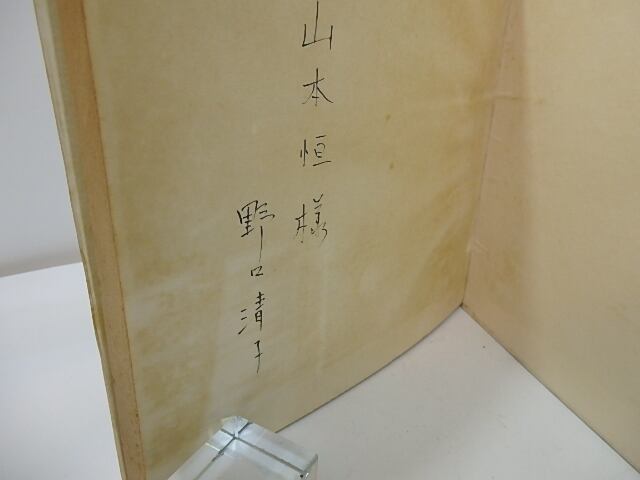 山本恒様
野口清子